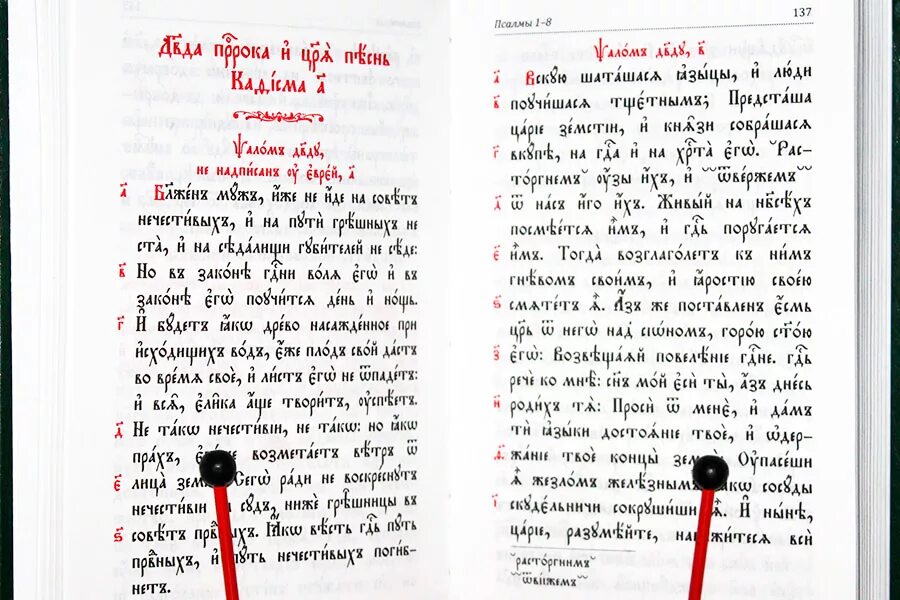 Дв҃да прⷪ҇рока и҆ цр҃ѧ̀ пѣ́снь
Каѳі́сма а҃
Ѱало́мъ дв҃ду,
не надпи́санъ ᲂу҆ є҆вре́й, а҃
а҃ Бл҃же́нъ мꙋ́жъ, и҆́же не и҆́де на совѣ́тъ
нечести́выхъ, и҆ на пꙋтѝ грѣ́шныхъ не
ста̀, и҆ на сѣда́лищи гꙋби́телей не сѣ́де:
в҃ Но въ зако́нѣ гдⷭ҇ни во́лѧ є҆гѡ̀ и҆ въ
зако́нѣ є҆гѡ̀ поꙋчи́тсѧ де́нь и҆ но́щь.
г҃ И҆ бꙋ́детъ ꙗ҆́кѡ дре́во насажде́нное при
и҆схо́дищихъ во́дъ, є҆́же пло́дъ сво́й да́стъ
во вре́мѧ своѐ, и҆ ли́стъ є҆гѡ̀ не ѿпаде́тъ:
и҆ всѧ̑, є҆ли̑ка а҆́ще твори́тъ, ᲂу҆спѣ́етъ.
д҃ Не та́кѡ нечести́вїи, не та́кѡ: но ꙗ҆́кѡ
пра́хъ, возмета́етъ вѣ́тръ ѿ
є҃ лица̀ Сегѡ̀ ра́ди не воскре́снꙋтъ
нечести́вїи сꙋ́дъ, нижѐ грѣ̑шницы въ
ѕ҃ совѣ́тъ Ꙗ҆́кѡ вѣ́сть гдⷭ҇ь пꙋ́ть
првⷣныхъ, и҆ пꙋ́ть нечести́выхъ поги́б-
нетъ.
Псалмы 1–8 137
Ѱало́мъ дв҃дꙋ, в҃
а҃ Вскꙋ́ю шата́шасѧ ꙗ҆зы́цы, и҆ лю́ди
в҃ поꙋчи́шасѧ тщє́тнымъ; Предста́ша
ца́рїе зе́мстїи, и҆ кнѧ̑зи собра́шасѧ
г҃ вкꙋ́пѣ, на гдⷭ҇а и҆ на хрⷭ҇та̀ є҆гѡ̀. Рас-
то́ргнемъ ᲂу҆́зы и҆́хъ, и҆ ѿве́ржемъ
д҃ ѿ на́съ и҆́го и҆́хъ. Живы́й на нб҃сѣ́хъ
посмѣе́тсѧ и҆̀мъ, и҆ гдⷭ҇ь порꙋга́етсѧ
є҃ и҆̀мъ. Тогда̀ возглаго́летъ къ ни̑мъ
гнѣ́вомъ свои́мъ, и҆ ꙗ҆́ростїю свое́ю
ѕ҃ смѧте́тъ ѧ҆̀. А҆́зъ же поста́вленъ є҆́смь
цр҃ь ѿ негѡ̀ над сїѡ́номъ, горо́ю ст҃о́ю
з҃ є҆гѡ̀: Возвѣща́ѧй повелѣ́нїе гдⷭ҇не. гдⷭ҇ь
речѐ ко мнѣ̀: сн҃ъ мо́й є҆сѝ ты̀, а҆́зъ дне́сь
и҃ роди́хъ тѧ̀: Просѝ ѿ менє̀, и҆ да́мъ
ти̑ ꙗ҆зы́ки достоѧ́нїе твоѐ, и҆ ѡ҆дер-
ѳ҃ жа́нїе твоѐ концы̀ Оу҆пасе́ши
ѧ҆̀ жезло́мъ желѣ́знымъ, ꙗ҆́кѡ сосꙋ́ды
і҃ скꙋдє́льничи сокрꙋши́ши ѧ҆̀. И҆ ны́нѣ,
ца́рїе, разꙋмѣ́йте, всѝ
расто́ргнимъ
ѿве́ржемъ